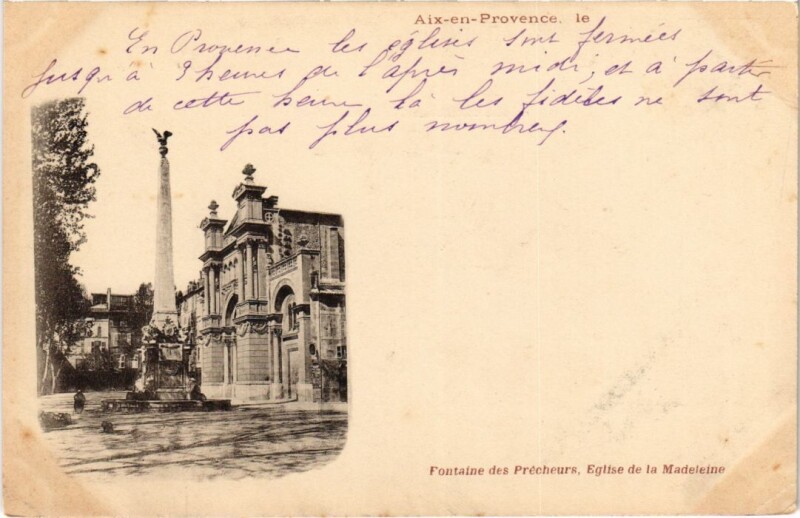 Aix-en-Provence, le
En Provence les églises sont fermées
jusqu'à 3 heures de l'après midi, et à partir
de cette heure là les fidèles ne sont
pas plus nombreux.
Fontaine des Prêcheurs, Eglise de la Madeleine